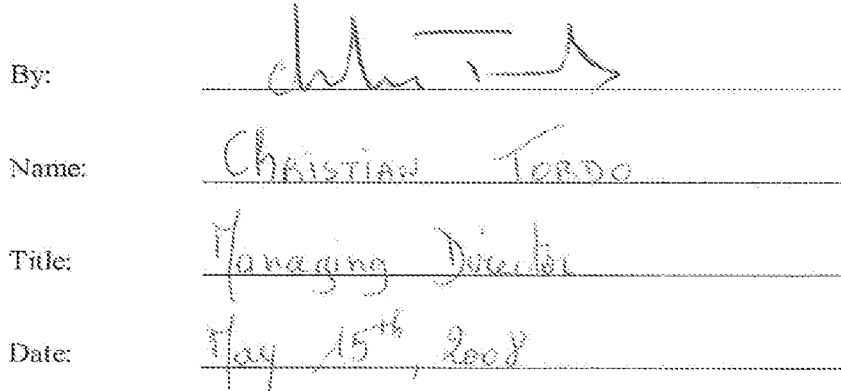 By:
Name: Christian Tordo
Title: Managing Director
Date: May 15th, 2008